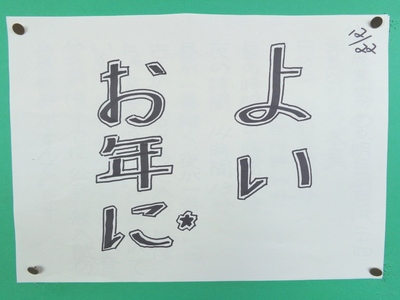 12/22
よい
お年に